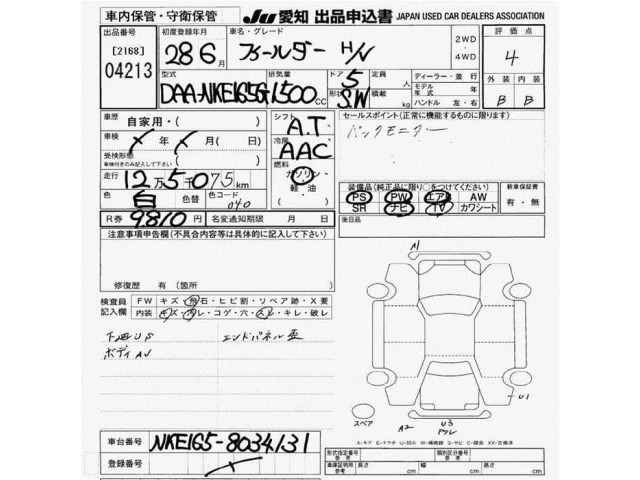 車内保管・守衛保管 JU 愛知 出品申込書 JAPAN USED CAR DEALERS ASSOCIATION
出品番号 初度登録年月 車名・グレード 2WD 評価点
[2168] 28 6月 フィールダー H/V ・ 4
04213 4WD
型式 排気量 ドア 5 定員 人 ディーラー・並行 外装 内装
DAA-NKE165G 1500 cc 形状 S.W 積載 kg モデル年式 年 B B
ハンドル 左・右
車歴 自家用・( ) シフト A.T セールスポイント(正常に機能するものに限ります)
車検 年 月( 日) 冷房 AAC バックモニター
受検形態 車検付きのみ記入して下さい ( ) 燃料
走行 12万5075km ガソリン
色 白 色替 色コード 040 軽・油 装備品(純正品に限り○をつけてください) 新車保証書
PS PW エアB AW 有・無
R券 9810円 名変通知期限 月 日 SR ナビ TV カワシート
注意事項申告欄(不具合内容等は具体的に記入して下さい) 後日品
修復歴 有(箇所 )
A1
検査員 FW キズ・飛石・ヒビ割・リペア跡・X要
記入欄 内装 キズ・汚レ・コゲ・穴・スレ・キレ・破レ
下廻りS エンドパネル歪
ボディAU
U1
スペア A2 U3
車台番号 NKE165-8034131
登録番号
形式指定番号 参考 類別区分番号 参考
車庫証明用 参考 長さ cm 幅 cm 高さ cm